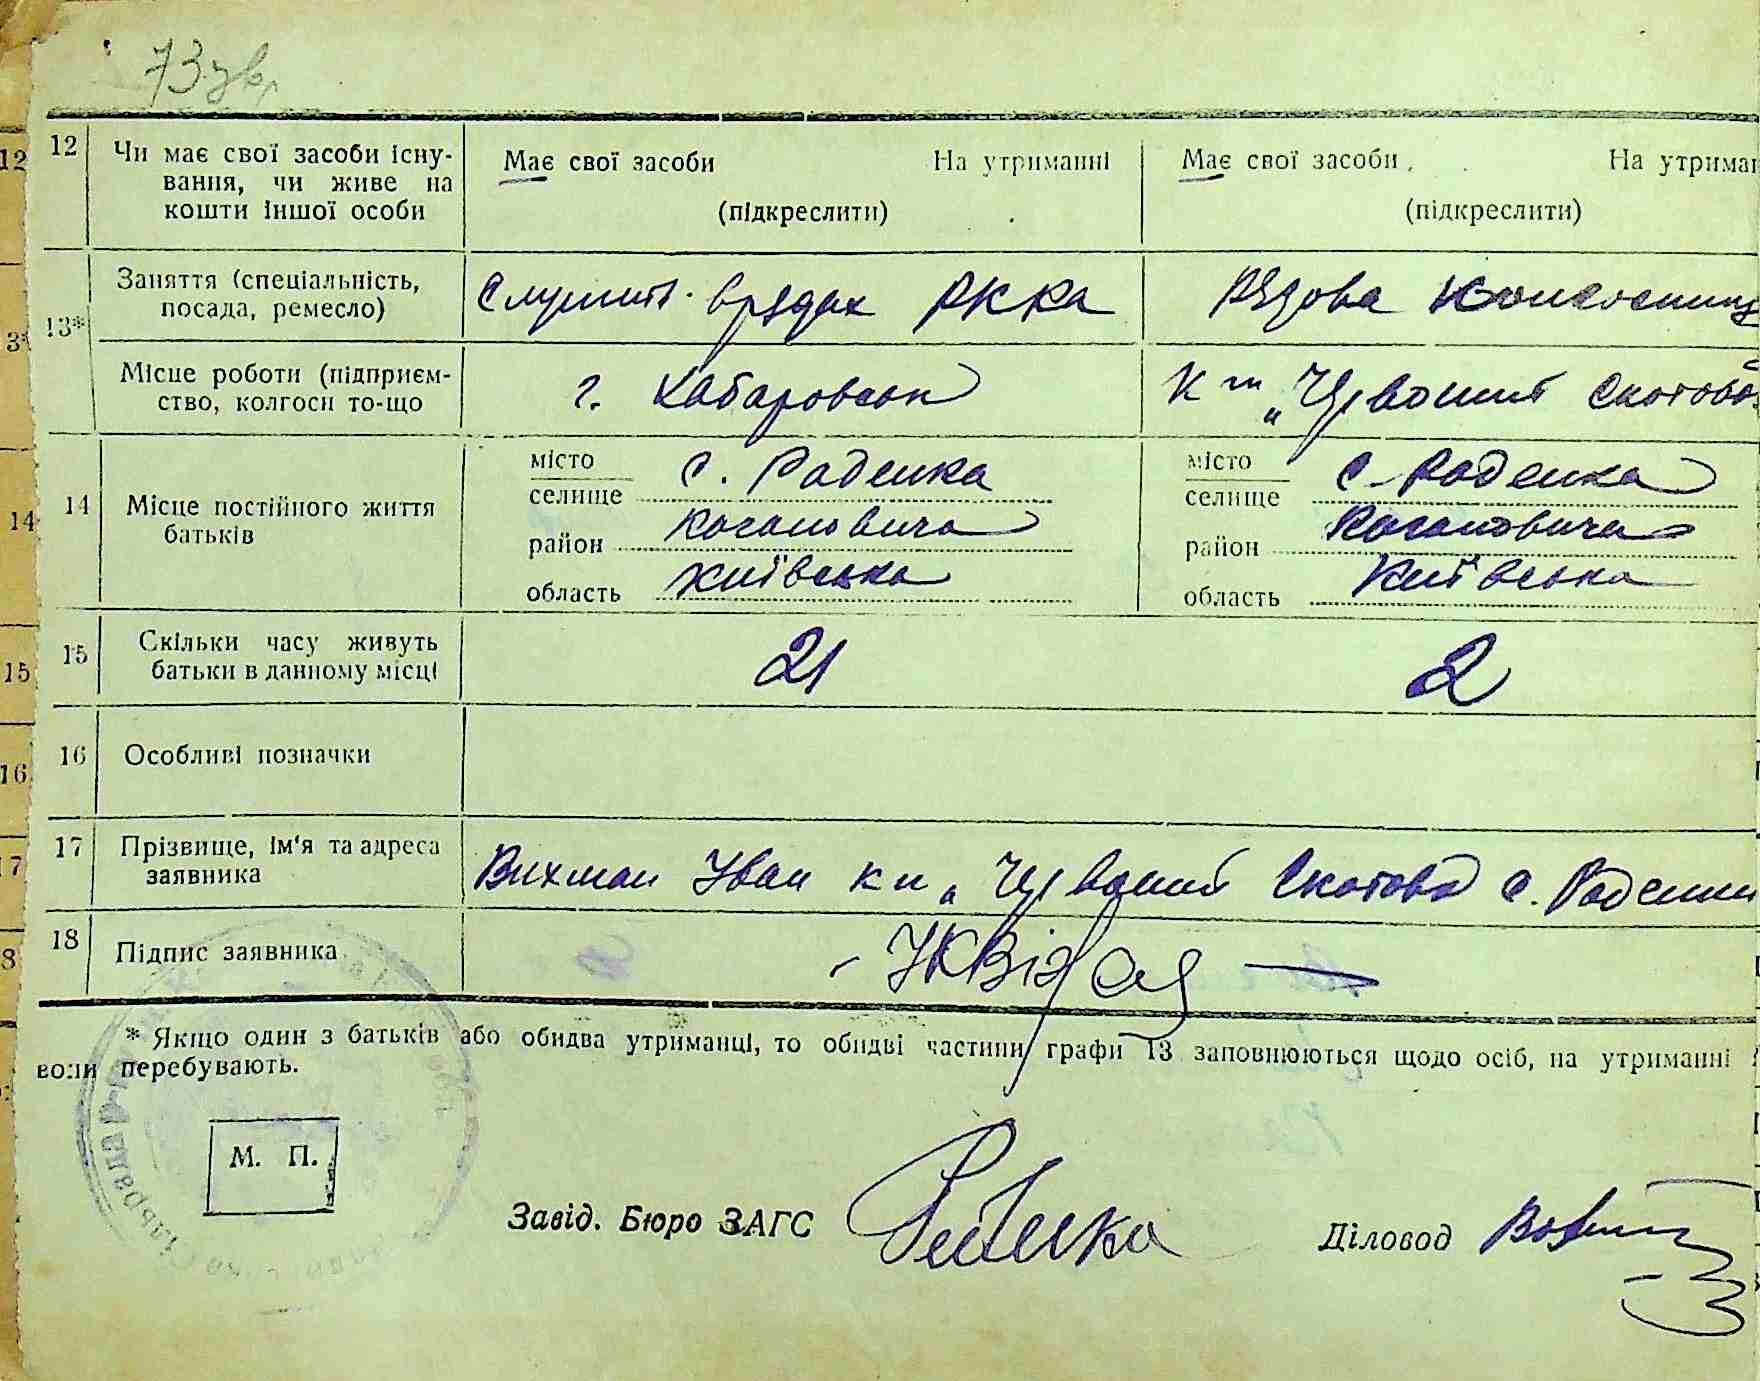 73
12 Чи має свої засоби існу-
вання, чи живе на
кошти іншої особи
Має свої засоби На утриманні
(підкреслити)
Має свої засоби На утриман
(підкреслити)
13* Заняття (спеціальність,
посада, ремесло)
Служить в рядах РККА
Рядова
Місце роботи (підприєм-
ство, колгосп то-що
г. Хабаровськ
К-п „Червоний Скотово
14 Місце постійного життя
батьків
місто
селище с. Раденка
район Кагановича
область Київська
місто
селище с. Раденка
район Кагановича
область Київська
15 Скільки часу живуть
батьки в данному місці
21
2
16 Особливі позначки
17 Прізвище, ім'я та адреса
заявника
Вихман Іван кп „Червоний Скотово с.
18 Підпис заявника
* Якщо один з батьків або обидва утриманці, то обидві частини графи 13 заповнюються щодо осіб, на утриманні
воли перебувають.
М. П.
Завід. Бюро ЗАГС
Діловод
12
3*
14
15
16
17
8